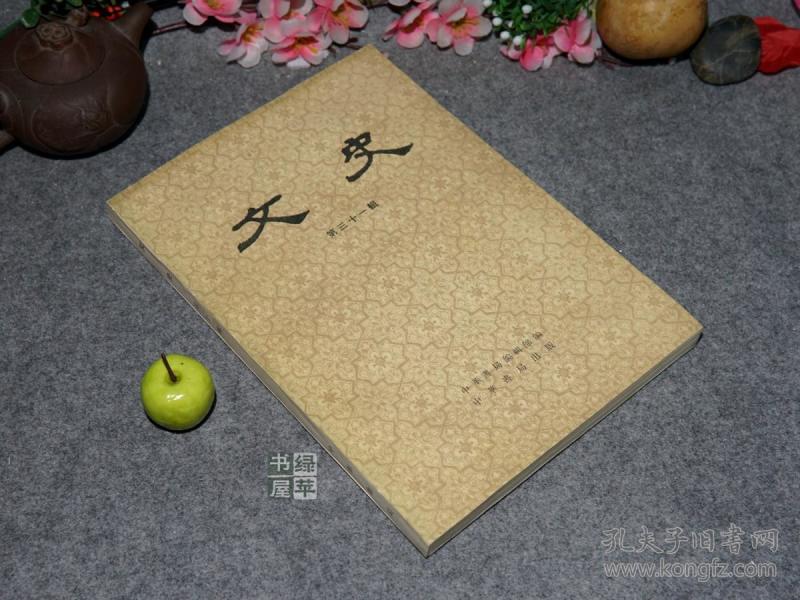 文史
第三十一輯
中華書局編輯部編
中華書局出版
绿苹
书屋
孔夫子旧书网
www.kongfz.com